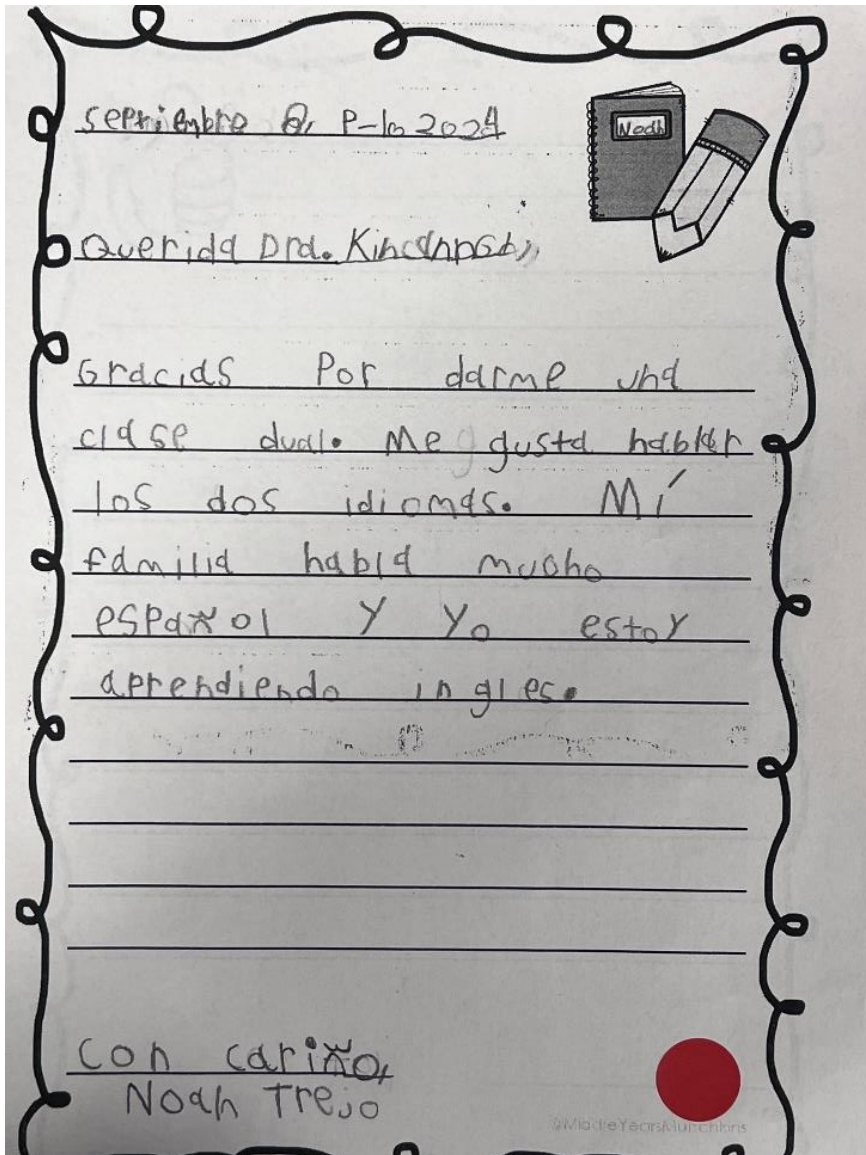 septiembre
2024
Noah
Querida Dra.
Gracias por darme una
clase dual. Me gusta hablar
los dos idiomas. Mí
familia habla mucho
español y yo estoy
aprendiendo ingles.
Con cariño,
Noah Trejo
©MiddleYearsMunchkins